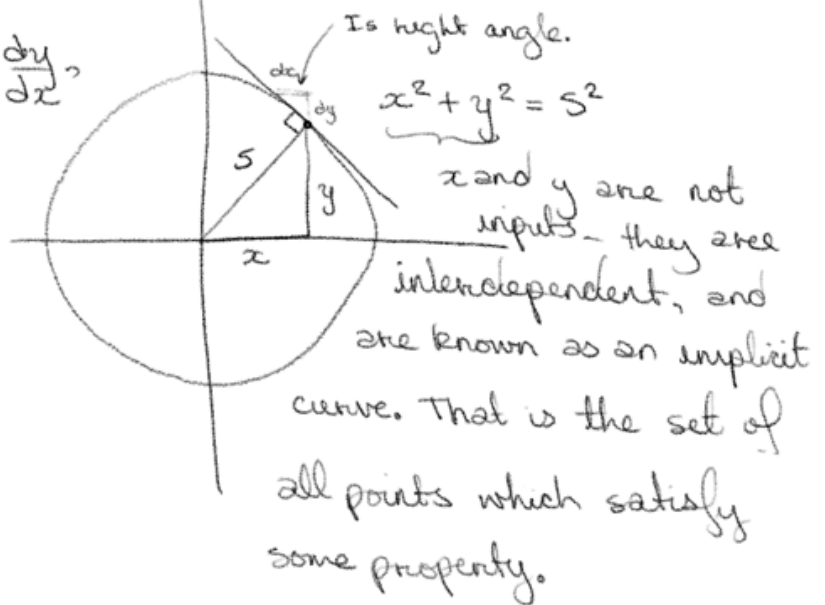 Is right angle.
dy/dx ?
dx
dy
x² + y² = 5²
5
y
x
x and y are not
inputs - they are
interdependent, and
are known as an implicit
curve. That is the set of
all points which satisfy
some property.